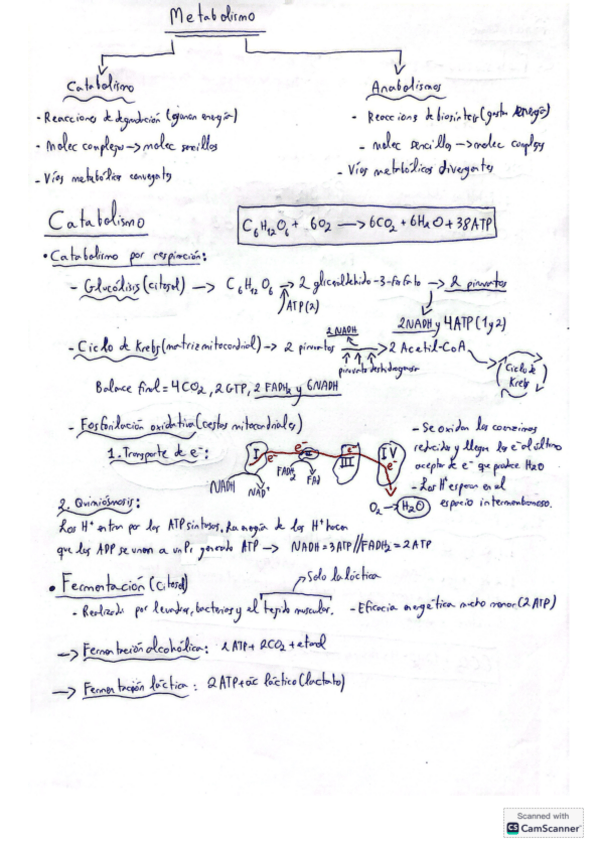 Metabolismo
Catabolismo
Anabolismos
- Reacciones de degradación (ganan energía)
- Reaccions de biosíntesis (gastan energía)
- Molec complejas → molec sencillas
- molec sencillas → molec complejas
- Vías metabólica convergents
- Vías metabólicas divergentes
Catabolismo
C6H12O6 + 6O2 → 6CO2 + 6H2O + 38ATP
• Catabolismo por respiración:
- Glucólisis (citosol) → C6H12O6 → 2 gliceraldehido-3-fosfato → 2 piruvatos
ATP(2)
2NADH y 4ATP (1 y 2)
2 NADH
- Ciclo de Krebs (matriz mitocondrial) → 2 piruvatos → 2 Acetil-CoA
piruvato deshidrogenasa
Ciclo de Krebs
Balance final = 4CO2, 2GTP, 2 FADH2 y 6NADH
- Fosforilación oxidativa (crestas mitocondriales)
1. Transporte de e-:
I e- e- II e- III IV e-
NADH NAD+ FADH2 FAD
O2 → H2O
- Se oxidan las coenzimas
reducidas y llegan los e- al último
aceptor de e- que produce H2O
- Los H+ esperan en el
espacio intermembranoso.
2. Quimiósmosis:
Los H+ entran por las ATP sintasas. La energía de los H+ hacen
que los ADP se unan a un Pi generando ATP → NADH = 3ATP // FADH2 = 2ATP
• Fermentación (citosol)
→ Solo la láctica
- Realizada por levaduras, bacterias y el tejido muscular.
- Eficacia energética mucho menor (2 ATP)
→ Fermentación alcohólica: 2 ATP + 2CO2 + etanol
→ Fermentación láctica: 2 ATP + ác láctico (lactato)
Scanned with
CS CamScanner